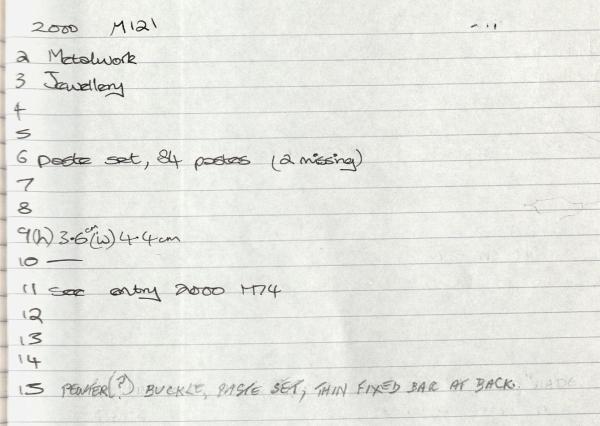 2000 M121
2 Metalwork
3 Jewellery
4
5
6 paste set, 84 pastes (2 missing)
7
8
9(h) 3.6cm (w) 4.4cm
10 —
11 see entry 2000 M74
12
13
14
15 PEWTER(?) BUCKLE, PASTE SET, THIN FIXED BAR AT BACK.